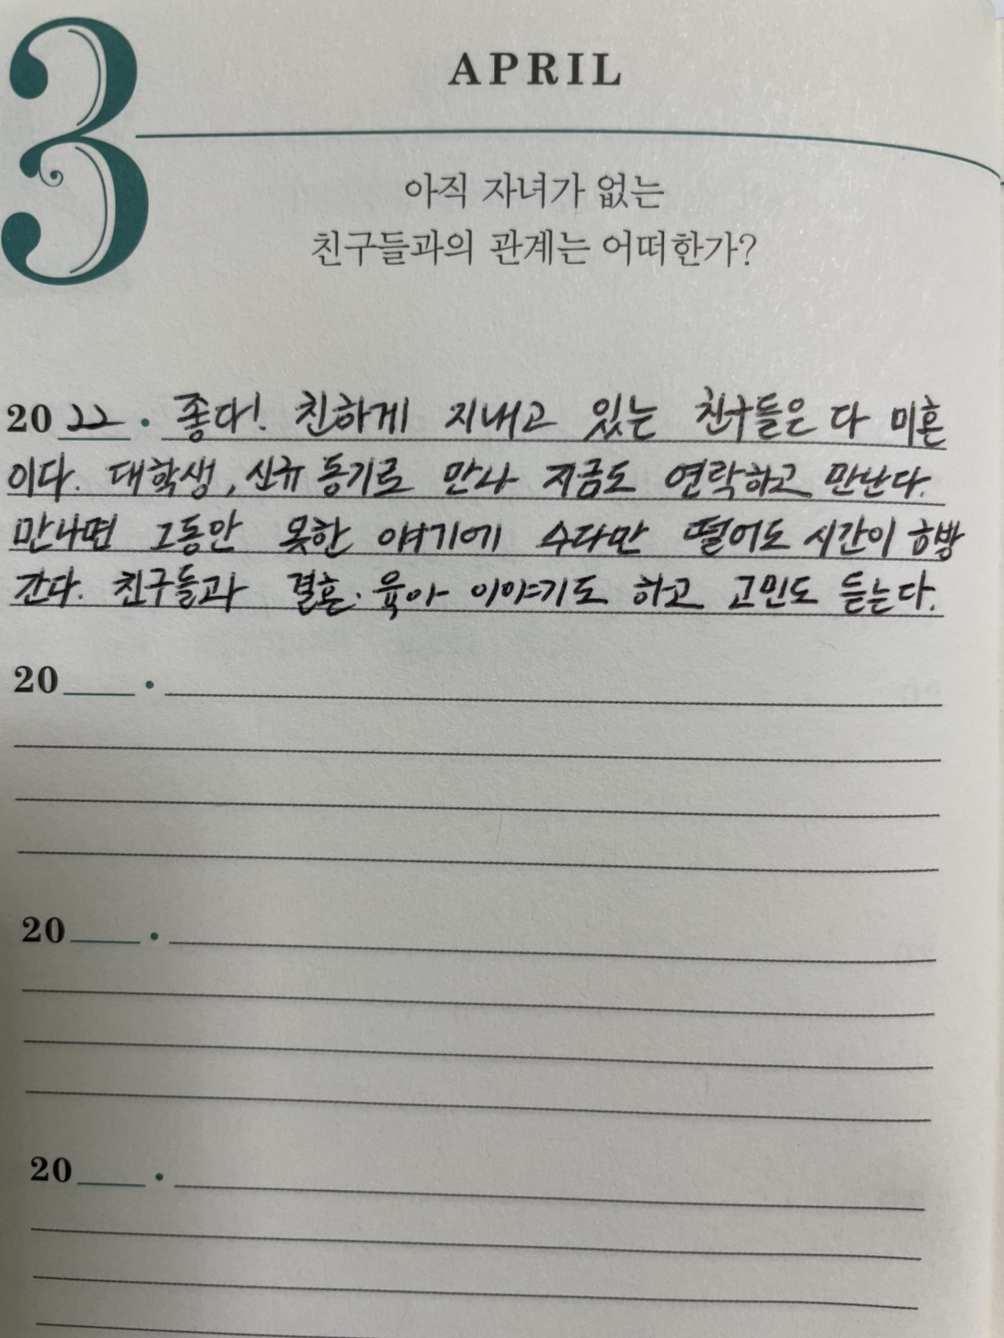 3
APRIL
아직 자녀가 없는
친구들과의 관계는 어떠한가?
2022 · 좋다! 친하게 지내고 있는 친구들은 다 미혼
이다. 대학생, 신규 동기로 만나 지금도 연락하고 만난다.
만나면 그동안 못한 얘기에 수다만 떨어도 시간이 훌쩍
간다. 친구들과 결혼·육아 이야기도 하고 고민도 듣는다.
20 ·
20 ·
20 ·